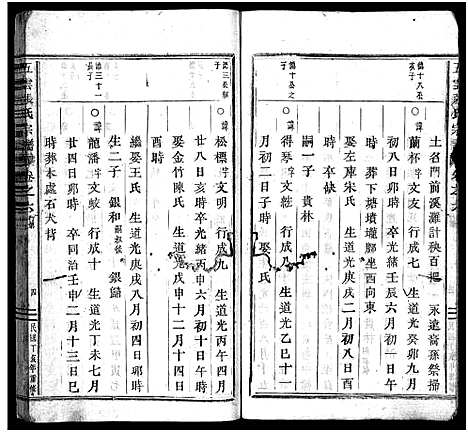 土名門前溪灘計秧百把 永遠嵩孫祭掃
德十八公長子
○諱蘭杯 諱文友 行成七 生道光癸卯九月
初八日卯時 卒光緒壬辰六月初一日午
時 葬下塘墳壠鄭坐西向東
娶左庫朱氏 生道光庚戌二月初八日酉
時 卒缺
嗣一子 貴林
德十公之子
○諱得琴 諱文輊 行成八 生道光乙巳十一
月初二日子時 娶 氏
德三公繼子
○諱松標 諱文明 行成九 生道光丙午四月
廿八日亥時卒光緒丙申六月初十日午時
娶金竹陳氏 生道光戊申十二月十四日
酉時
繼娶王氏 生道光庚戌八月初四日卯時
生二子 銀和嗣叔後 銀歸
德三十一長子
○諱龍潘 諱文蛟 行成十 生道光丁未七月
廿四日卯時 卒同治壬申二月十三日巳
時葬本處石犬背
五雲張氏宗譜 卷之六
四
民國丁亥年重修